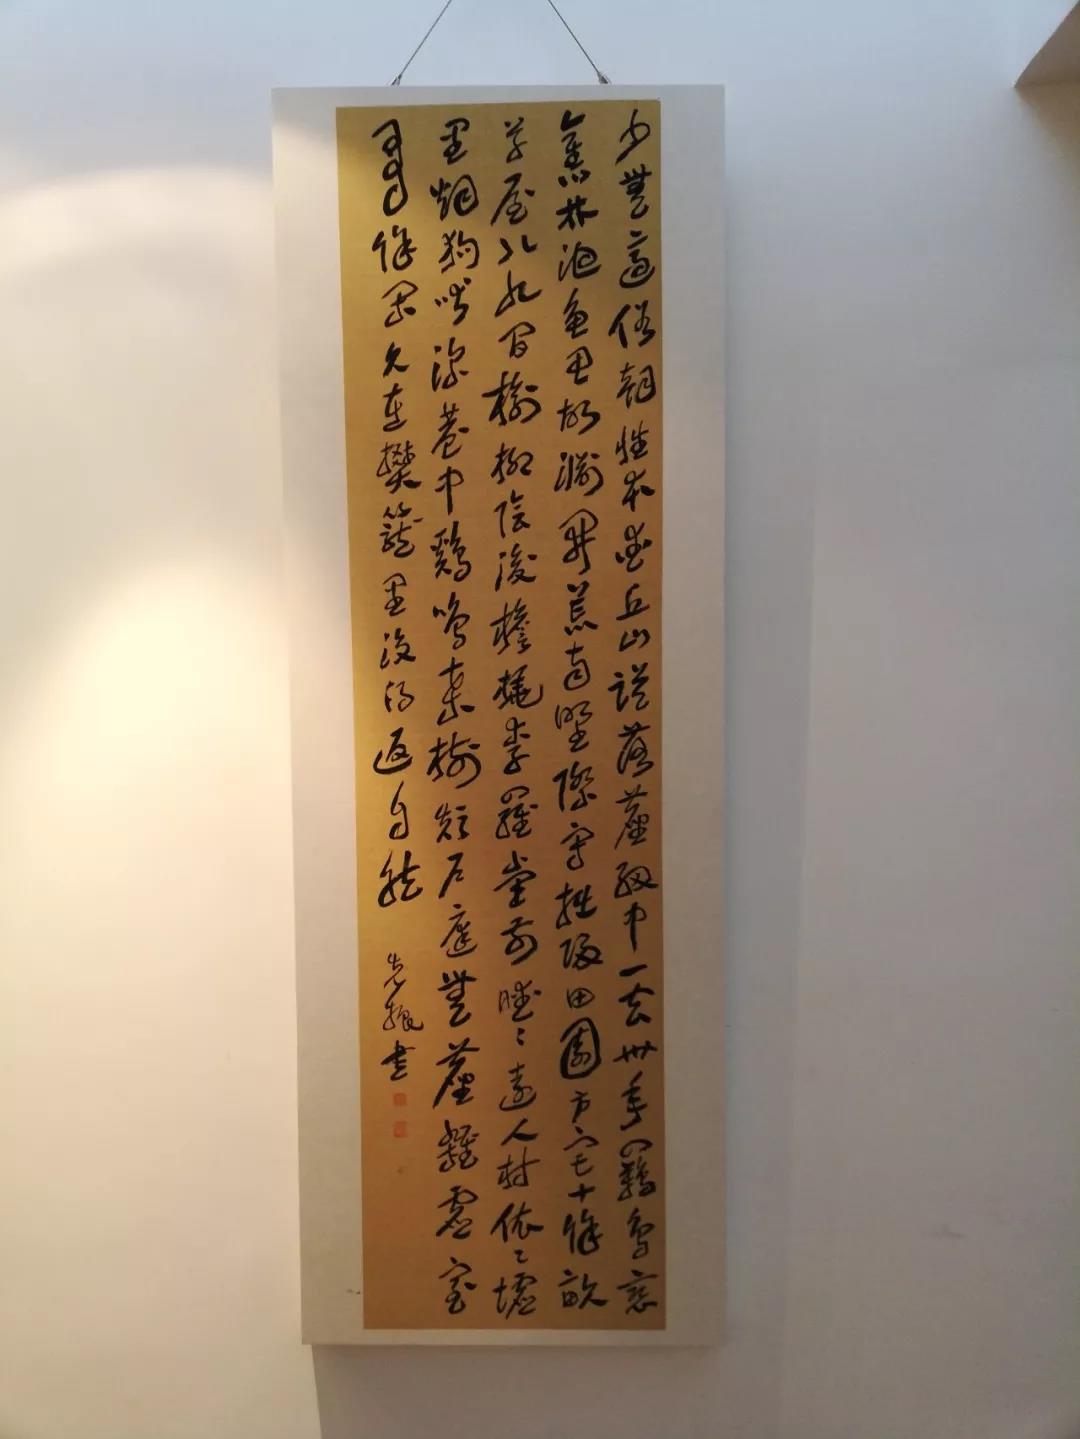 少無適俗韻性本愛丘山誤落塵網中一去卅年羈鳥戀
舊林池魚思故淵開荒南野際守拙歸田園方宅十餘畝
草屋八九間榆柳陰後檐桃李羅堂前曖〻遠人村依〻墟
里烟狗吠深巷中鷄鳴桑樹顛戶庭無塵雜虛室
有餘閑久在樊籠里復得返自然 先 書